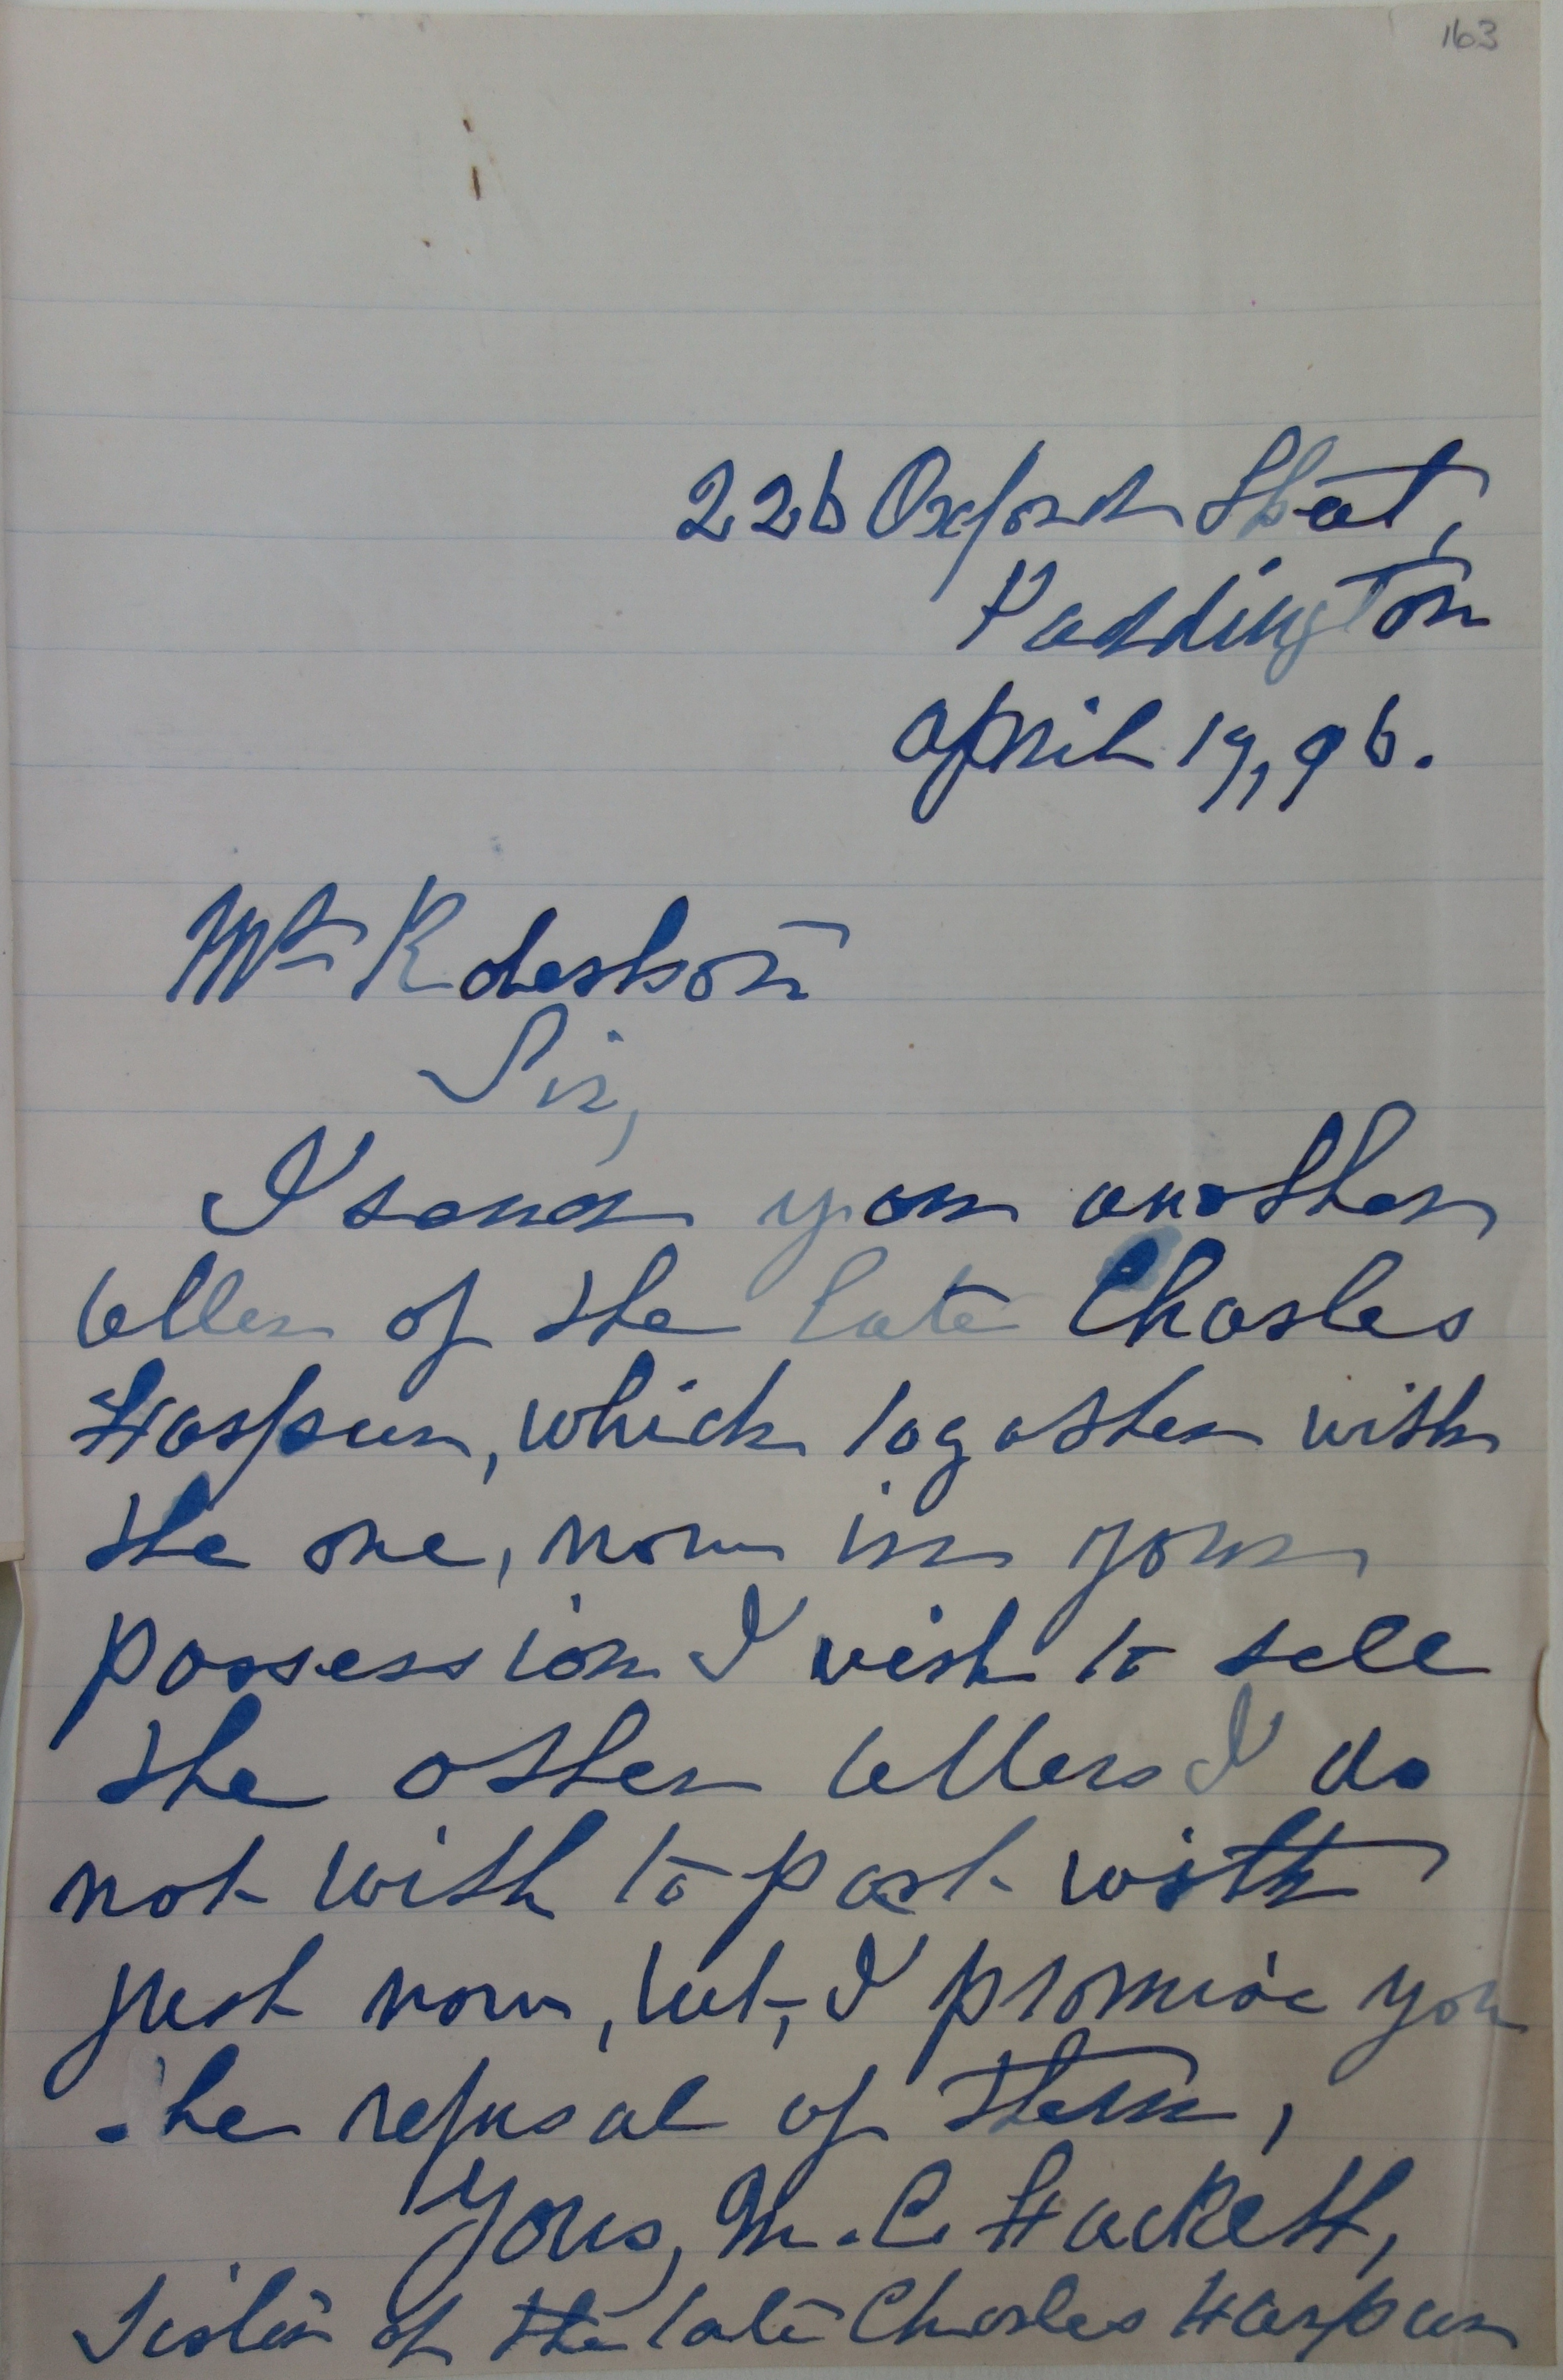 163
226 Oxford Street,
Paddington
April 19, 96.
Mr Robertson
Sir,
I send you another
letter of the late Charles
Harpur, which together with
the one, now in your
possession I wish to sell
the other letters I do
not wish to part with
just now, but, I promise you
the refusal of them,
Yours, M. C. Hackett,
Sister of the late Charles Harpur